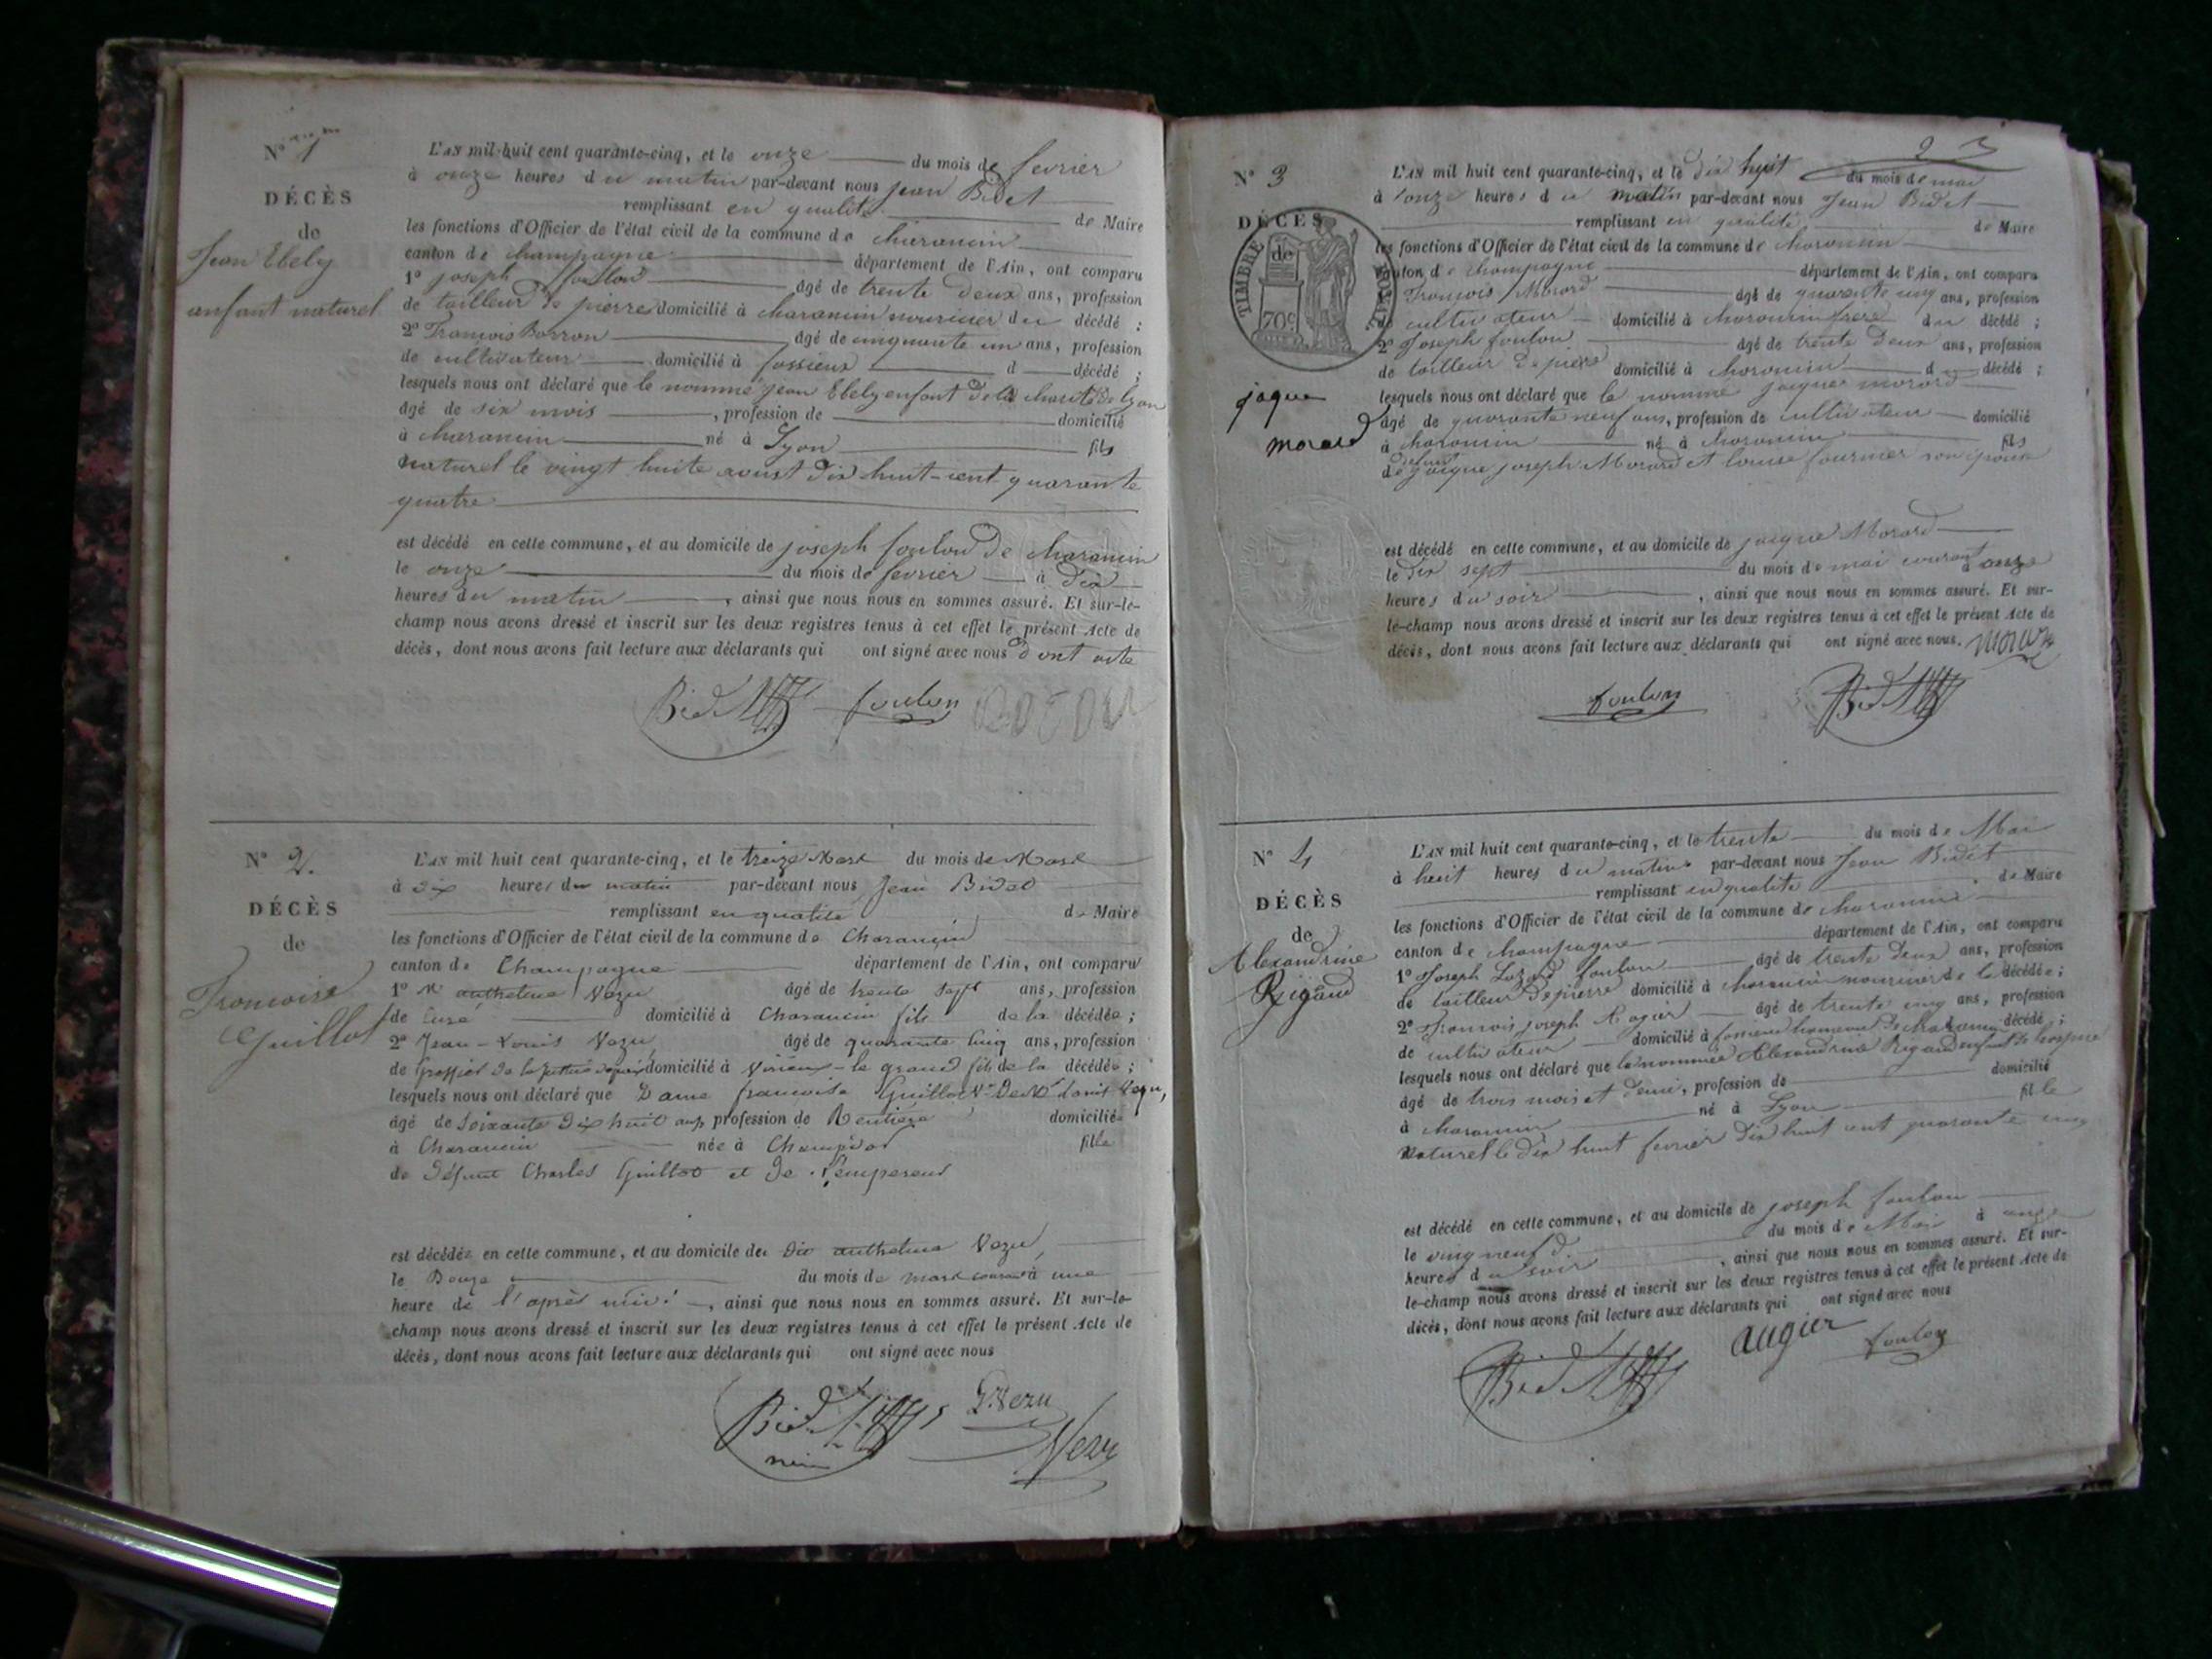 N° 1
DÉCÈS
de
Jean Ebely
anfant naturel
L'AN mil huit cent quarante-cinq, et le onze du mois de fevrier
à onze heures du matin par-devant nous jean Bidet
remplissant en qualité de Maire
les fonctions d'Officier de l'état civil de la commune de charancin
canton de champagne département de l'Ain, ont comparu
1° joseph foulon âgé de trente deux ans, profession
de tailleur de pierre domicilié à charancin nouricier du décédé ;
2° François Borron âgé de cinquante un ans, profession
de cultivateur domicilié à fossieux d décédé ;
lesquels nous ont déclaré que le nommé jean Ebely enfant de la charité de lyon
âgé de six mois , profession de domicilié
à charancin né à Lyon fils
naturel le vingt huite aoust dix huit-cent quarante
quatre
est décédé en cette commune, et au domicile de joseph foulon de charancin
le onze du mois de fevrier à dix
heures du matin , ainsi que nous nous en sommes assuré. Et sur-le-
champ nous avons dressé et inscrit sur les deux registres tenus à cet effet le présent Acte de
décès, dont nous avons fait lecture aux déclarants qui ont signé avec nous dont acte
Bidet foulon
N° 2.
DÉCÈS
de
Francoise
Guillot
L'AN mil huit cent quarante-cinq, et le treize Mars du mois de Mars
à dix heures du matin par-devant nous Jean Bidet
remplissant en qualité de Maire
les fonctions d'Officier de l'état civil de la commune de Charancin
canton de Champagne département de l'Ain, ont comparu
1° Mr anthelme Vezu âgé de trente sept ans, profession
de Curé domicilié à Charancin fils de la décédée ;
2° Jean-Louis Vezu âgé de quarante cinq ans, profession
de Greffier de la justice de paix domicilié à Virieux-le grand fils de la décédée ;
lesquels nous ont déclaré que Dame francoise Guillot Ve De Mr Louis Vezu,
âgé de Soixante dix huit ans, profession de Rentière domiciliée
à Charancin née à Champdor fille
de Défunt Charles Guillot et de Lempereur
est décédée en cette commune, et au domicile du Dit anthelme Vezu,
le Douze du mois de mars courant à une
heure de l'après midi , ainsi que nous nous en sommes assuré. Et sur-le-
champ nous avons dressé et inscrit sur les deux registres tenus à cet effet le présent Acte de
décès, dont nous avons fait lecture aux déclarants qui ont signé avec nous
Bidet L. Vezu
Vezu
N° 3
DÉCÈS
de
TIMBRE ROYAL
70c
jaque
morard
L'AN mil huit cent quarante-cinq, et le dix huit du mois de mai
à onze heures du matin par-devant nous Jean Bidet
remplissant en qualité de Maire
les fonctions d'Officier de l'état civil de la commune de charancin
canton de champagne département de l'Ain, ont comparu
François Morard âgé de quarante cinq ans, profession
de cultivateur domicilié à charancin frere du décédé ;
2° Joseph foulon âgé de trente deux ans, profession
de tailleur de piere domicilié à charancin d décédé ;
lesquels nous ont déclaré que le nommé jaque morard
âgé de quarante neuf ans, profession de cultivateur domicilié
à charancin né à charancin fils
de defunt jaque joseph Morard et louise fournier son épouse
est décédé en cette commune, et au domicile de jaque Morard
le dix sept du mois de mai courant à onze
heures du soir , ainsi que nous nous en sommes assuré. Et sur-
le-champ nous avons dressé et inscrit sur les deux registres tenus à cet effet le présent Acte de
décès, dont nous avons fait lecture aux déclarants qui ont signé avec nous.
foulon Bidet
N° 4
DÉCÈS
de
Alexandrine
Rigaud
L'AN mil huit cent quarante-cinq, et le trente du mois de Mai
à huit heures du matin par-devant nous Jean Bidet
remplissant en qualité de Maire
les fonctions d'Officier de l'état civil de la commune de charancin
canton de champagne département de l'Ain, ont comparu
1° Joseph foulon âgé de trente deux ans, profession
de tailleur de pierre domicilié à charancin nouricier de la décédée ;
2° François joseph Augier âgé de trente cinq ans, profession
de cultivateur domicilié à décédé ;
lesquels nous ont déclaré que la nommée Alexandrine Rigaud enfant de
âgé de trois mois et demi, profession de domicilié
à charancin né à Lyon fille
naturel le dix huit fevrier dix huit cent quarante cinq
est décédé en cette commune, et au domicile de joseph foulon
le vingt neuf du mois de Mai à onze
heures du soir , ainsi que nous nous en sommes assuré. Et sur-
le-champ nous avons dressé et inscrit sur les deux registres tenus à cet effet le présent Acte de
décès, dont nous avons fait lecture aux déclarants qui ont signé avec nous
Bidet augier foulon